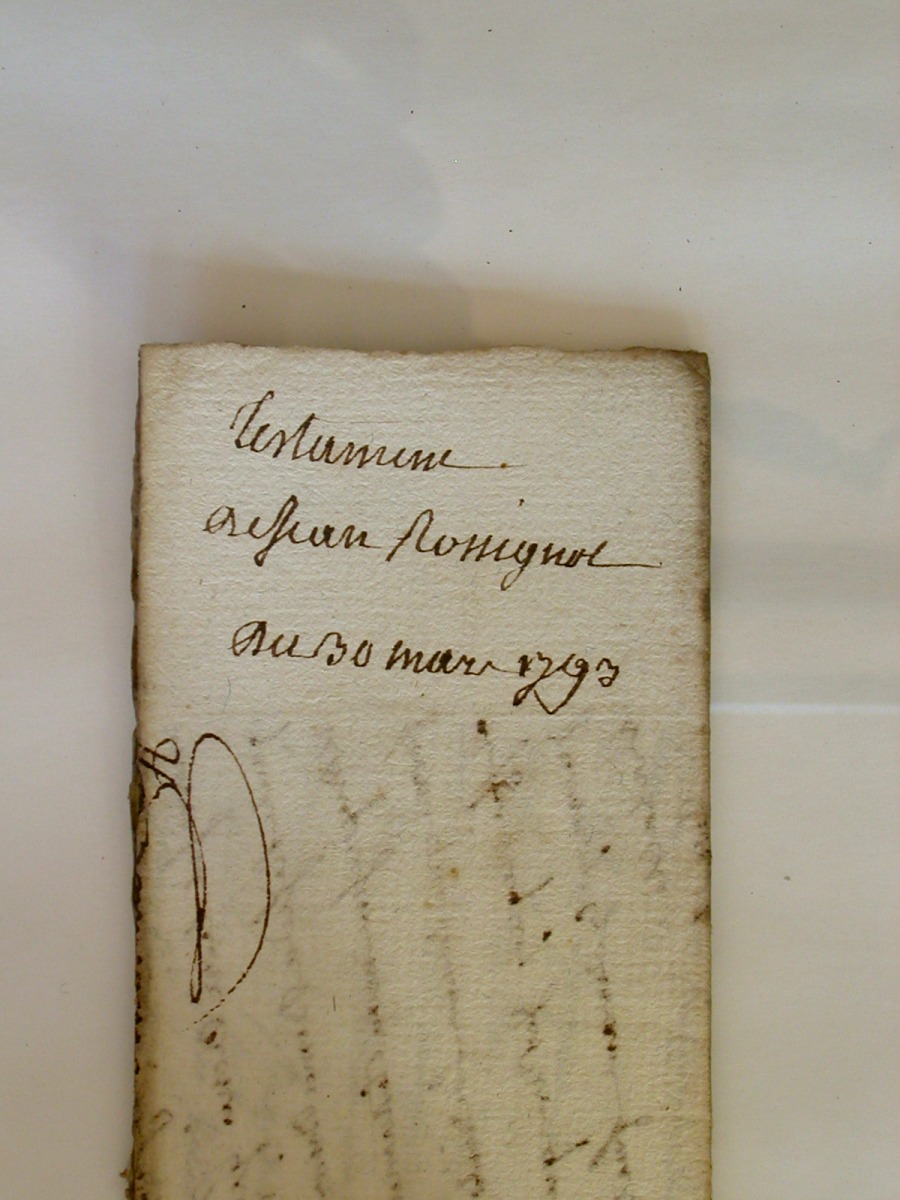 Testament
de Jean Rossignol
du 30 mars 1793